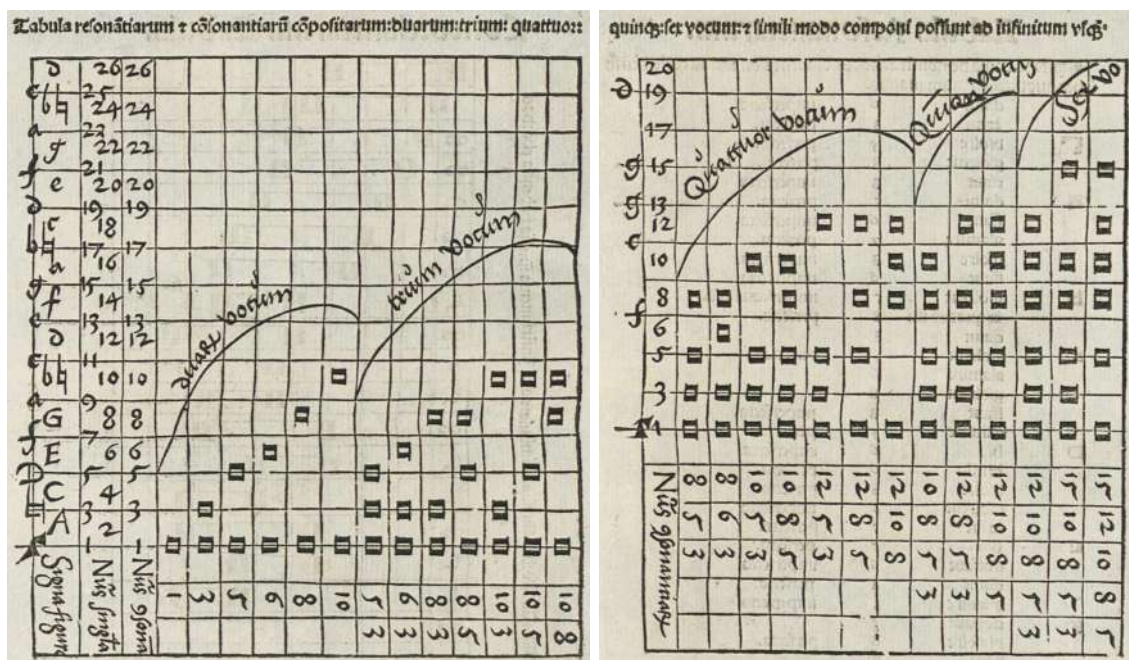 Tabula resonātiarum ⁊ cōsonantiarū cōpositarum:duarum:trium: quattuor:
d 26 26
c 25
b♮ 24 24
a 23
g 22 22
f 21
e 20 20
d 19 19
c 18
b♮ 17 17
a 16
g 15 15
f 14 14
e 13 13
d 12 12
c 11
b♮ 10 10
a 9
G 8 8
f 7
E 6 6
D 5 5
C 4
3 3
A 2
1 1
duaꝝ vocum
trium vocum
Signa figura
Nūs simpla
Nūs gēmina
1 3 5 6 8 10 5 6 8 8 10 10 10
3 3 3 5 3 5 8
quinqꝫ:sex vocum:⁊ simili modo componi possunt ad infinitum vsqꝫ·
20
d 19
17
15
g 13
12
c
10
f 8
6
5
3
1
Quattuor vocum
Quinqꝫ vocum
Sex vo
Nūs geminatꝰ
8 8 10 10 12 12 12 10 12 12 12 15 15
5 6 5 8 5 8 10 8 8 10 10 10 12
3 3 3 5 3 5 8 5 5 8 8 8 10
3 3 5 5 5 8
3 3 5